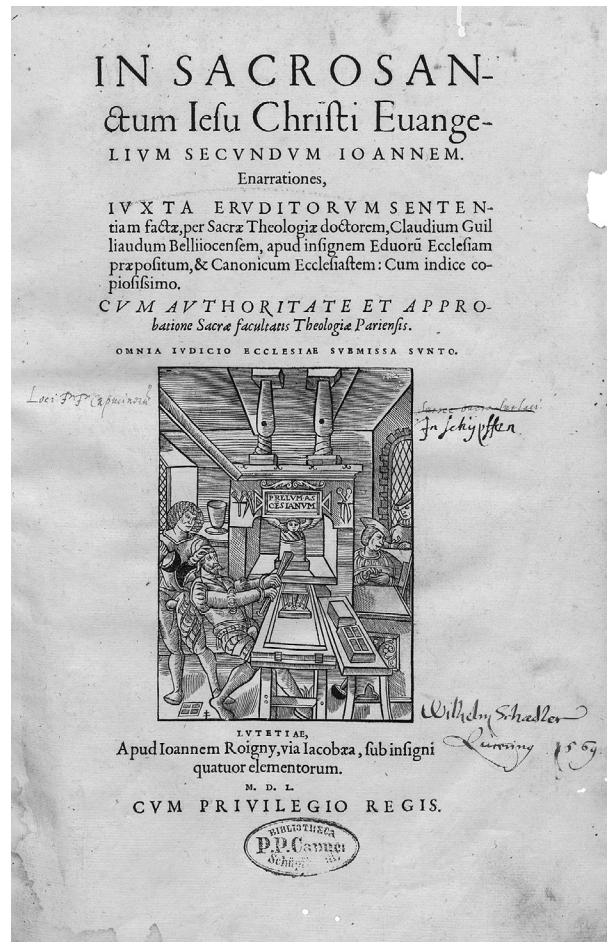 IN SACROSAN-
ctum Iesu Christi Euange-
LIVM SECVNDVM IOANNEM.
Enarrationes,
IVXTA ERVDITORVM SENTEN-
tiam factæ, per Sacræ Theologiæ doctorem, Claudium Guil
liaudum Belliiocensem, apud insignem Eduorū Ecclesiam
præpositum, & Canonicum Ecclesiastem: Cum indice co-
piosissimo.
CVM AVTHORITATE ET APPRO-
batione Sacræ facultatis Theologiæ Pariensis.
OMNIA IVDICIO ECCLESIAE SVBMISSA SVNTO.
Loci P. P. Capucinorū
In schüpffen
PRELVM AS
CESIANVM
Wilhelm Schedler
1569
LVTETIAE,
Apud Ioannem Roigny, via Iacobæa, sub insigni
quatuor elementorum.
M. D. L.
CVM PRIVILEGIO REGIS.
BIBLIOTHECA
P.P. Capuci